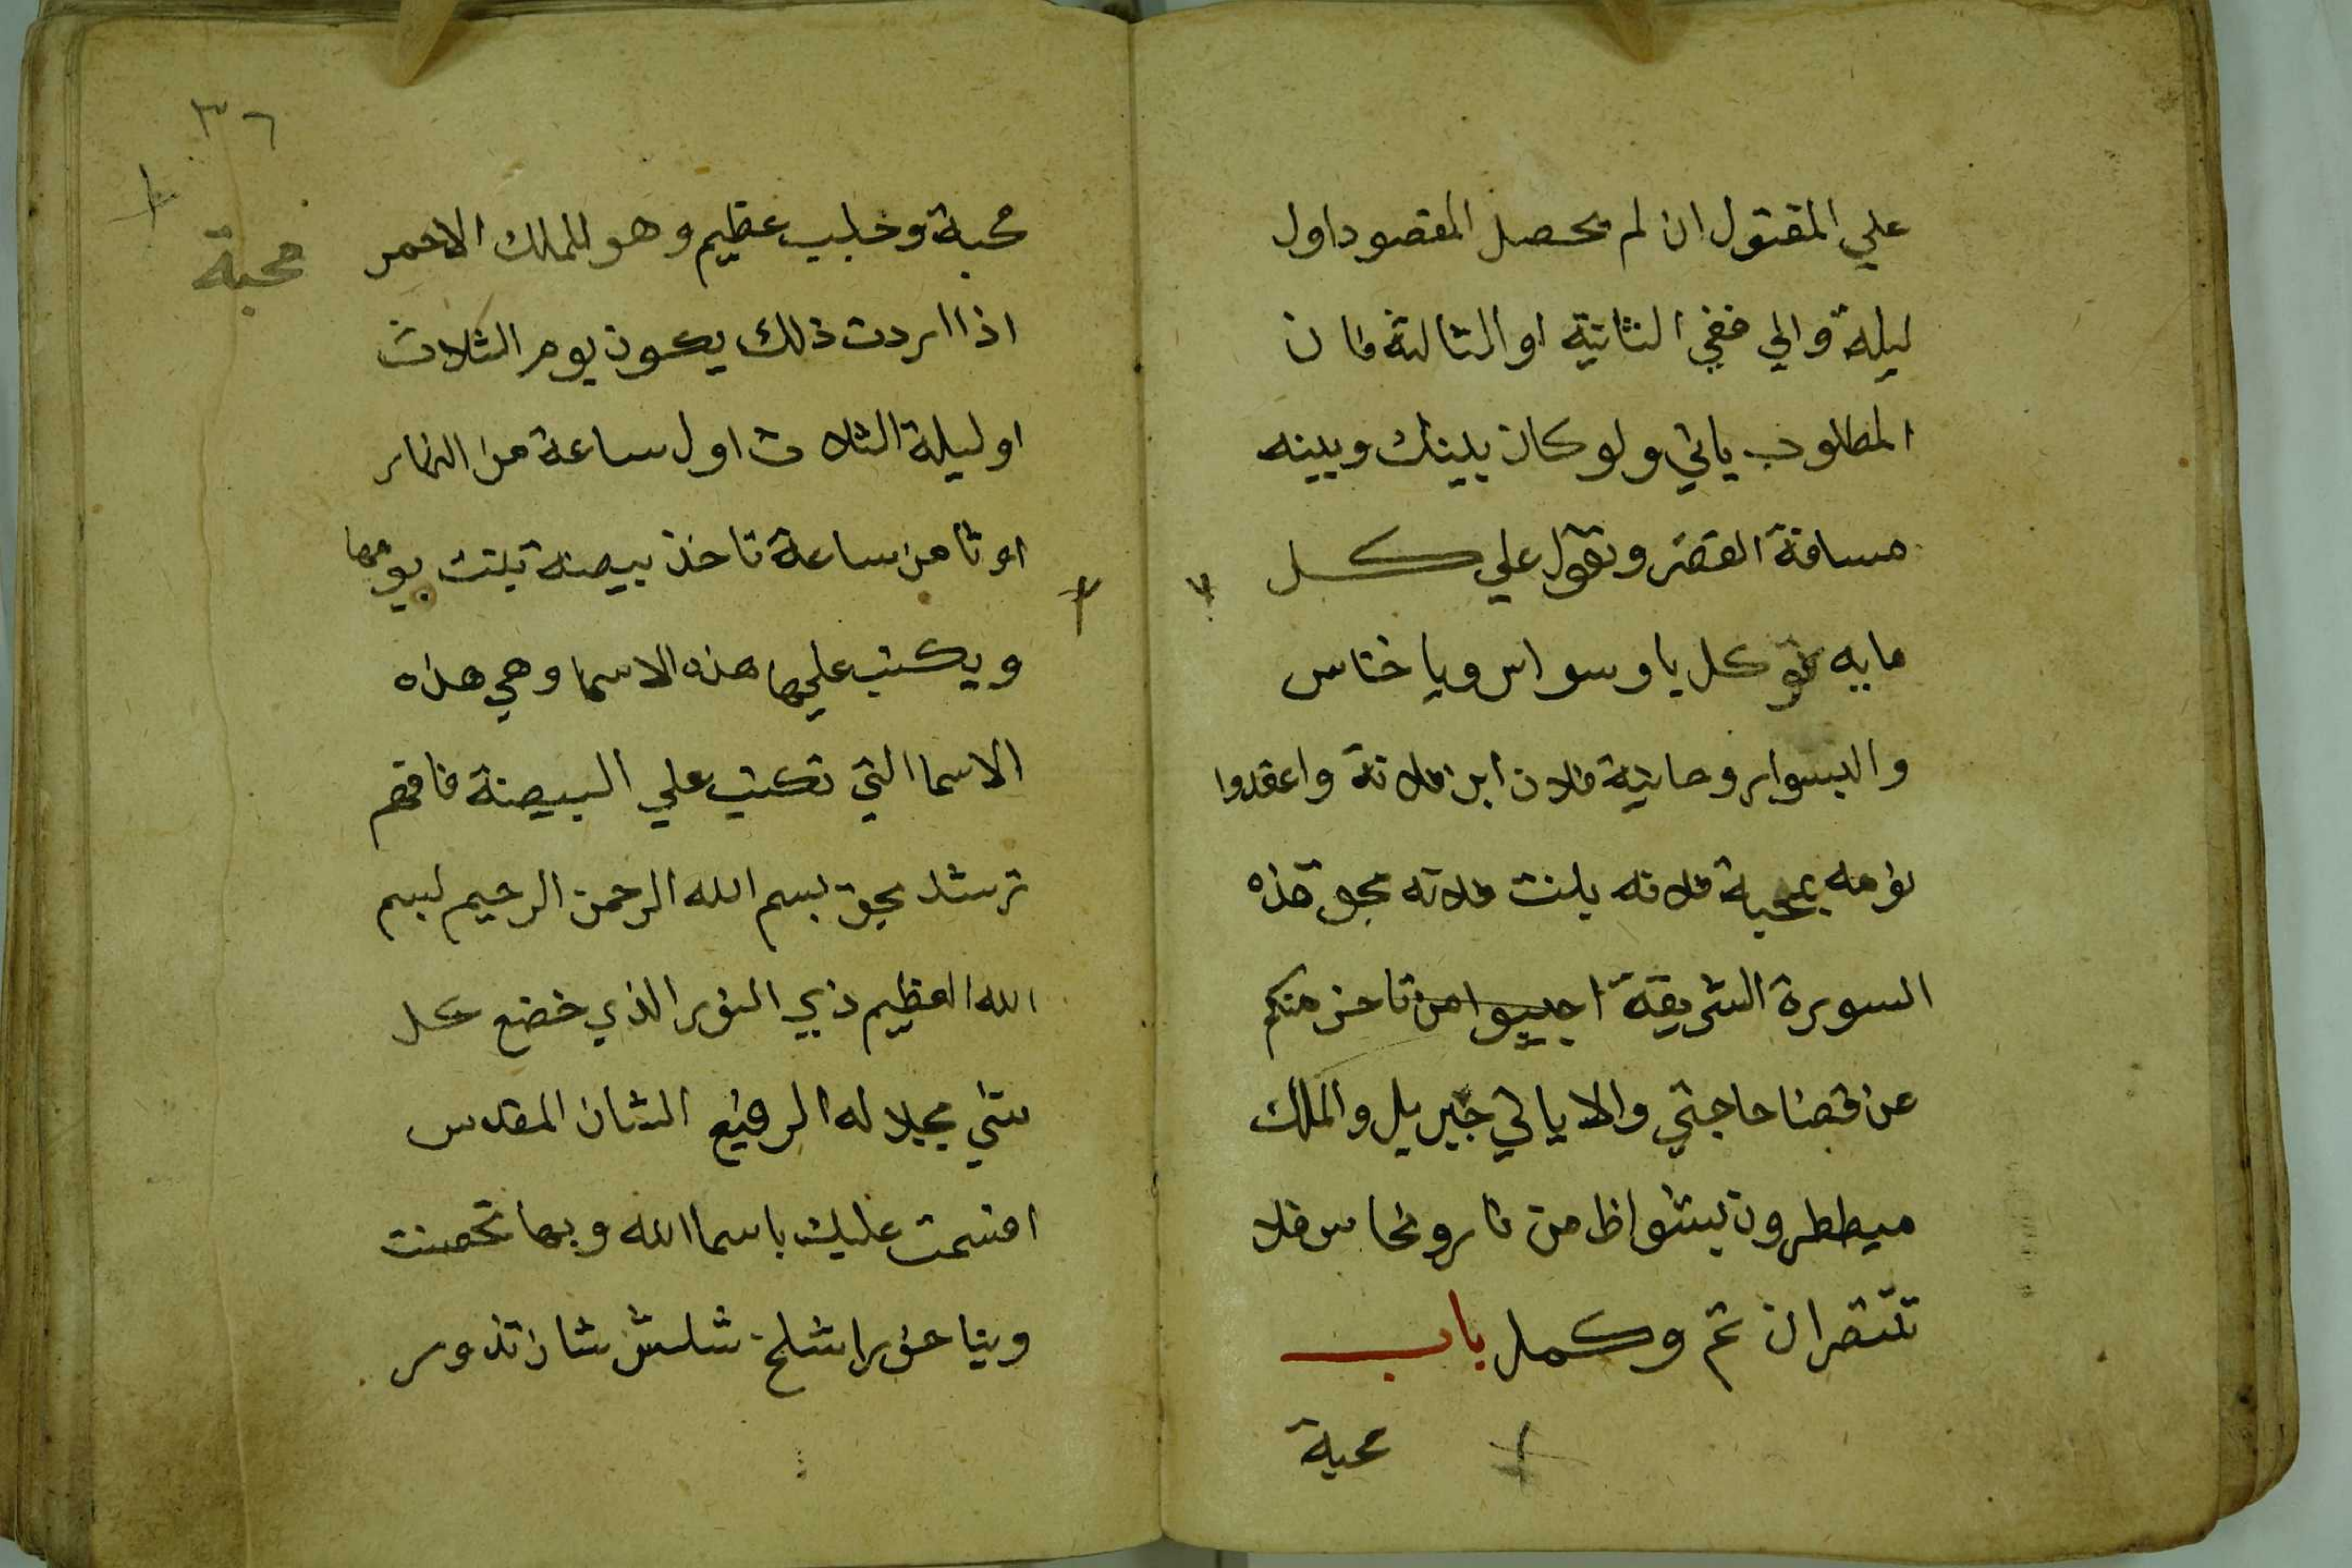 علي المقتول ان لم يحصل المقصود اول
ليلة والي ففي الثانية او الثالثة فان
المطلوب ياتي ولو كان بينك وبينه
مسافة القصر وتقول علي كل
مايه توكل يا وسواس ويا خناس
والبسوا روحانية فلان ابن فلانة واعقدوا
نومه بمحبة فلانه بلنت فلانه بحق هذه
السورة الشريفة اجيبوا من تاخر منكم
عن قضا حاجتي والا ياتي جبريل والملك
ميططرون بشواظ من نار ونحاس فلا
تنتصران تم وكمل باب
محبة
٣٦
محبة
محبة وجليب عظيم وهو للملك الاحمر
اذا اردت ذلك يكون يوم الثلاث
او ليلة الثلاث اول ساعة من النهار
او ثامن ساعة تاخذ بيضة بنت يومها
ويكتب عليها هذه الاسما وهي هذه
الاسما التي تكتب علي البيضة فافهم
ترشد بحق بسم الله الرحمن الرحيم بسم
الله العظيم ذي النور الذي خضع كل
شي بجلاله الرفيع الشان المقدس
اقسمت عليك باسما الله وبها تحصنت
شلش شان